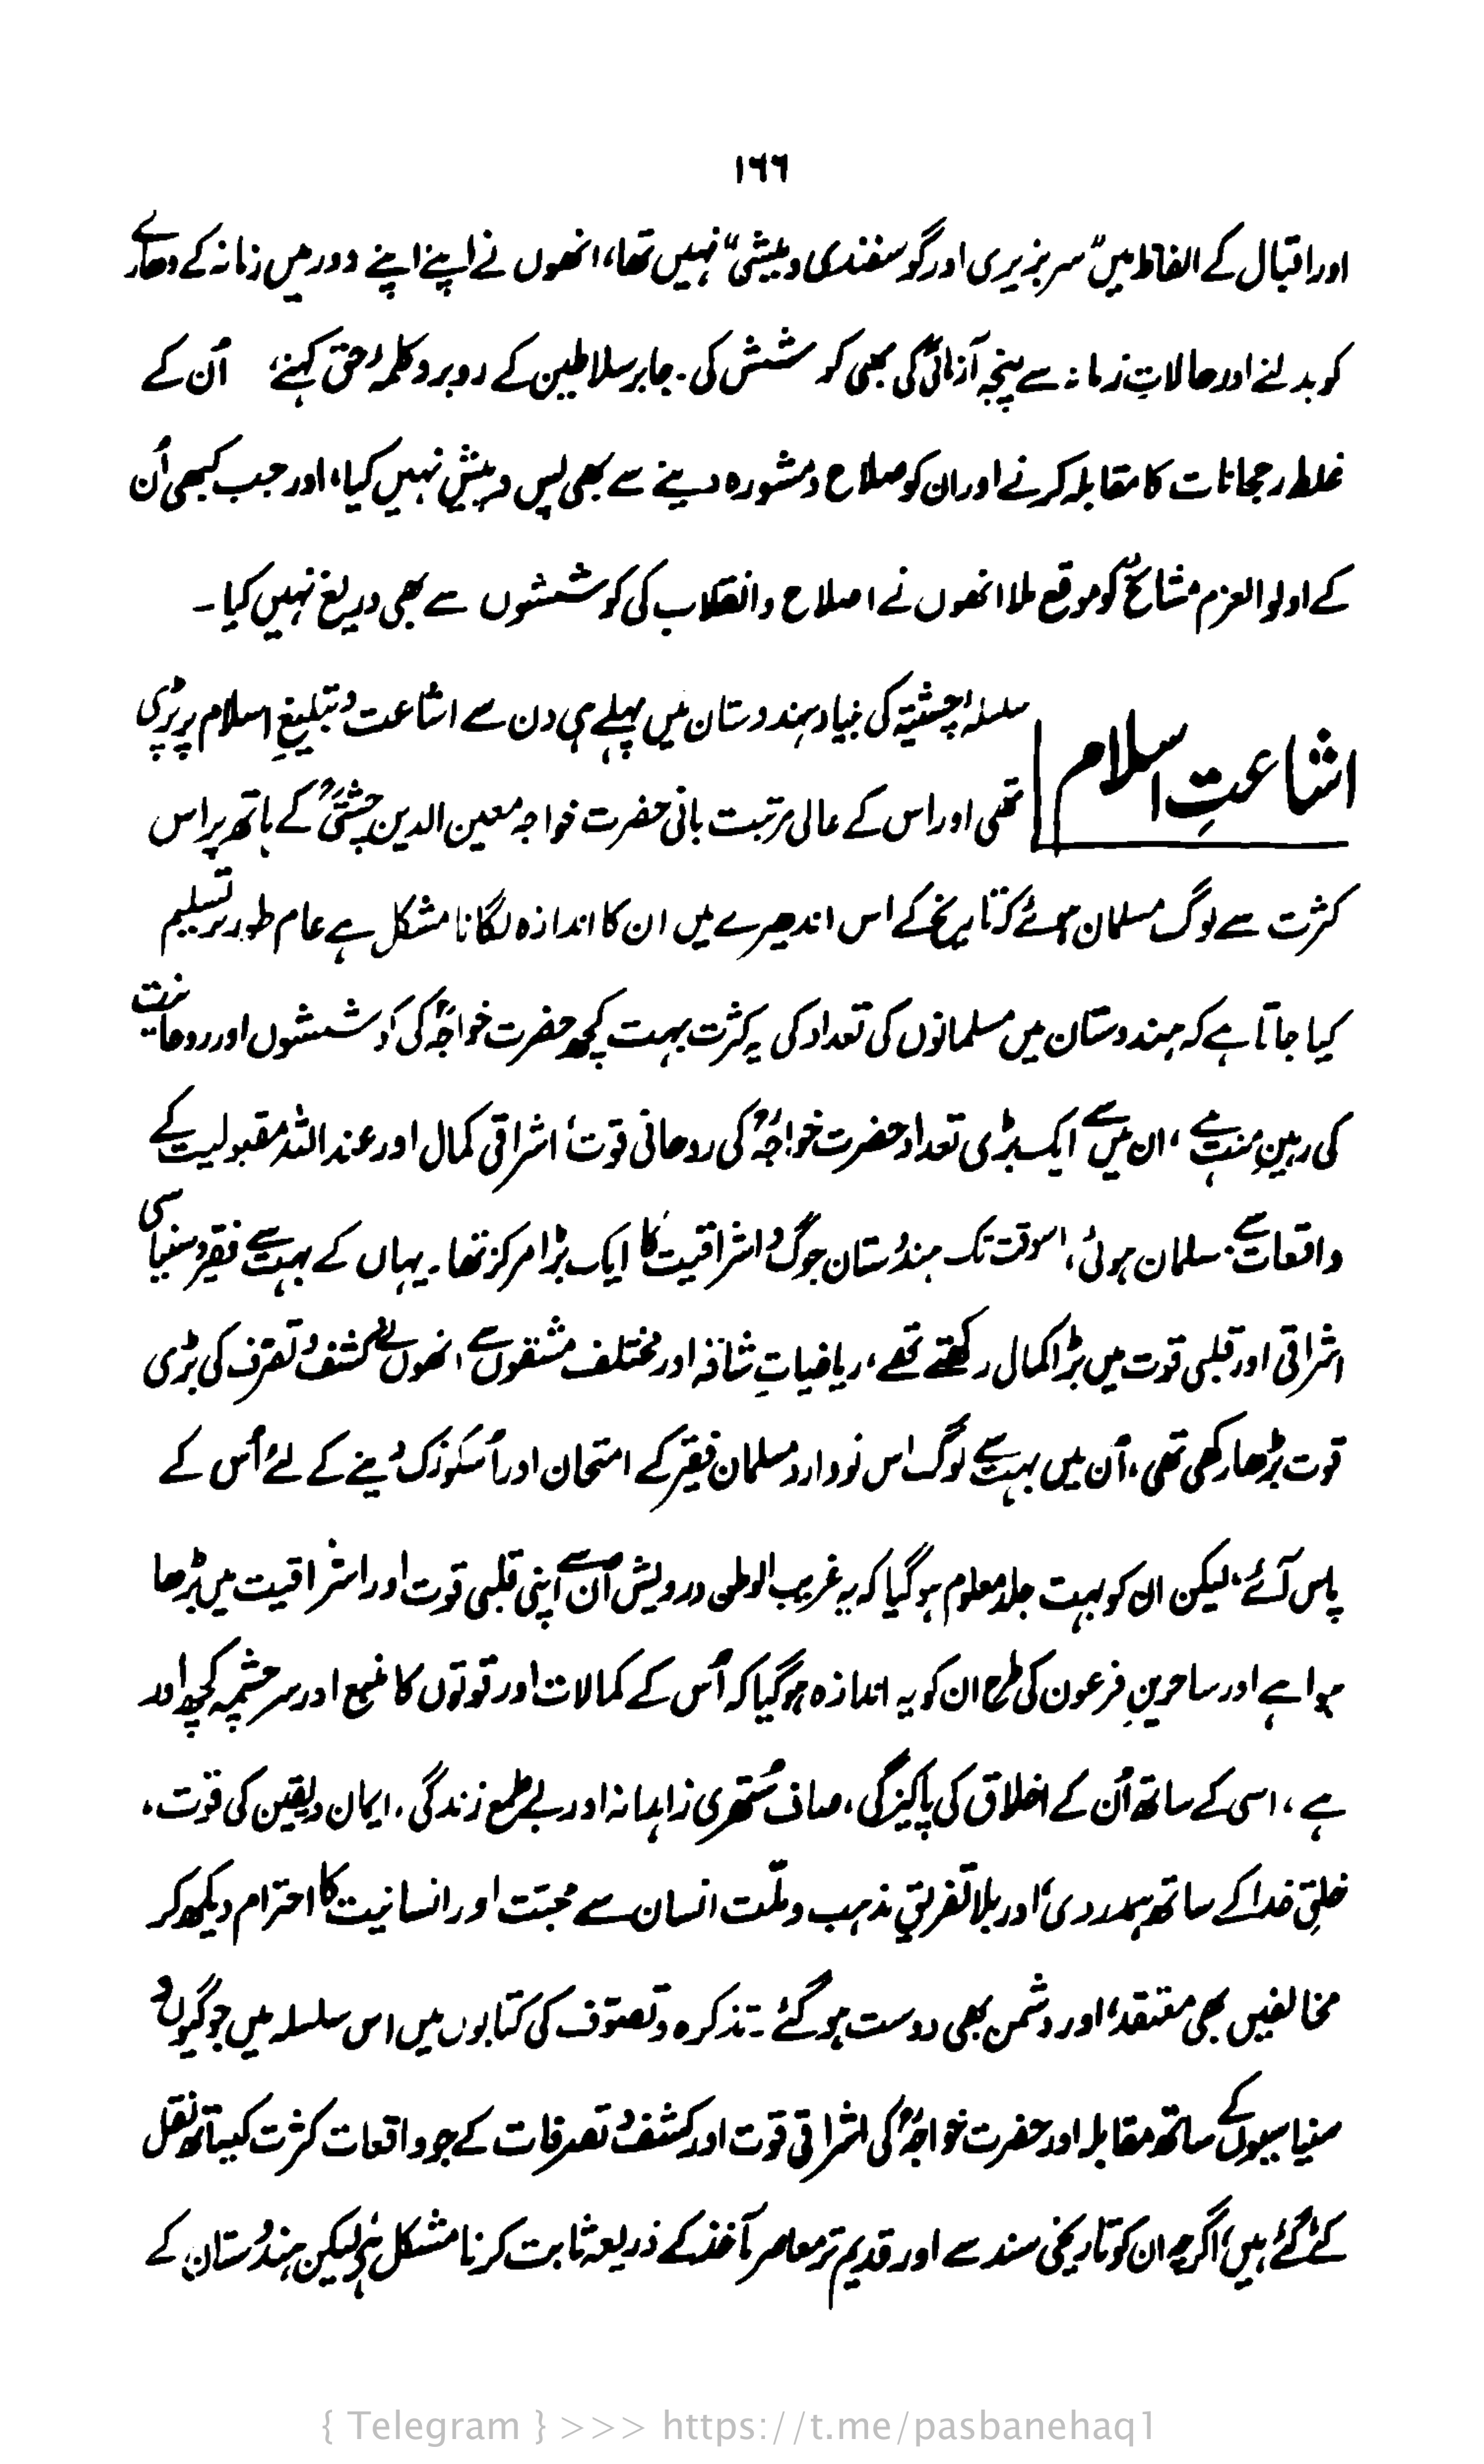 ۱۶۶
اور اقبال کے الفاظ میں "سر بزیری اور گوسفندی و میشی" نہیں تھا، انھوں نے اپنے اپنے دور میں زمانہ کے دھارے
کو بدلنے اور حالاتِ زمانہ سے پنجہ آزمائی کی بھی کوشش کی۔ جابر سلاطین کے روبرو کلمۂ حق کہنے، اُن کے
غلط رجحانات کا مقابلہ کرنے اور ان کو صلاح و مشورہ دینے سے بھی پس و پیش نہیں کیا، اور جب کبھی اُن
کے اولوالعزم مشائخؒ کو موقع ملا انھوں نے اصلاح و انقلاب کی کوششوں سے بھی دریغ نہیں کیا۔
اشاعتِ اسلام
سلسلۂ چشتیہ کی بنیاد ہندوستان میں پہلے ہی دن سے اشاعت و تبلیغِ اسلام پر پڑی
تھی اور اس کے عالی مرتبت بانی حضرت خواجہ معین الدین چشتیؒ کے ہاتھ پر اس
کثرت سے لوگ مسلمان ہوئے کہ تاریخ کے اس اندھیرے میں ان کا اندازہ لگانا مشکل ہے عام طور پر تسلیم
کیا جاتا ہے کہ ہندوستان میں مسلمانوں کی تعداد کی یہ کثرت بہت کچھ حضرت خواجہؒ کی کوششوں اور روحانیت
کی رہینِ منت ہے، ان میں سے ایک بڑی تعداد حضرت خواجہؒ کی روحانی قوت، اشراقی کمال اور عند اللہ مقبولیت کے
واقعات سے مسلمان ہوئی، اسوقت تک ہندوستان جوگ و اشراقیت کا ایک بڑا مرکز تھا۔ یہاں کے بہت سے فقیر و سنیاسی
اشراقی اور قلبی قوت میں بڑا کمال رکھتے تھے، ریاضیاتِ شاقہ اور مختلف مشقوں سے انھوں نے کشف و تصرف کی بڑی
قوت بڑھا رکھی تھی، اُن میں بہت سے لوگ اس نووارد مسلمان فقیر کے امتحان اور اُسکو زک دینے کے لئے اُس کے
پاس آئے، لیکن ان کو بہت جلد معلوم ہو گیا کہ یہ غریب الوطن درویش اُن سے اپنی قلبی قوت اور اشراقیت میں بڑھا
ہوا ہے اور ساحرینِ فرعون کی طرح ان کو یہ اندازہ ہو گیا کہ اُس کے کمالات اور قوتوں کا منبع اور سرچشمہ کچھ اور
ہے، اسی کے ساتھ اُن کے اخلاق کی پاکیزگی، صاف ستھری زاہدانہ اور بے طمع زندگی، ایمان و یقین کی قوت،
خلقِ خدا کے ساتھ ہمدردی، اور بلا تفریقِ مذہب و ملّت انسان سے محبّت اور انسانیت کا احترام دیکھ کر
مخالفین بھی معتقد، اور دشمن بھی دوست ہو گئے۔ تذکرہ و تصوّف کی کتابوں میں اس سلسلہ میں جوگیوں و
سنیاسیوں کے ساتھ مقابلہ اور حضرت خواجہؒ کی اشراقی قوت اور کشف و تصرفات کے جو واقعات کثرت کیساتھ نقل
کئے گئے ہیں، اگرچہ ان کو تاریخی سند سے اور قدیم تر معاصر مآخذ کے ذریعہ ثابت کرنا مشکل ہے لیکن ہندوستان کے
{ Telegram } >>> https://t.me/pasbanehaq1